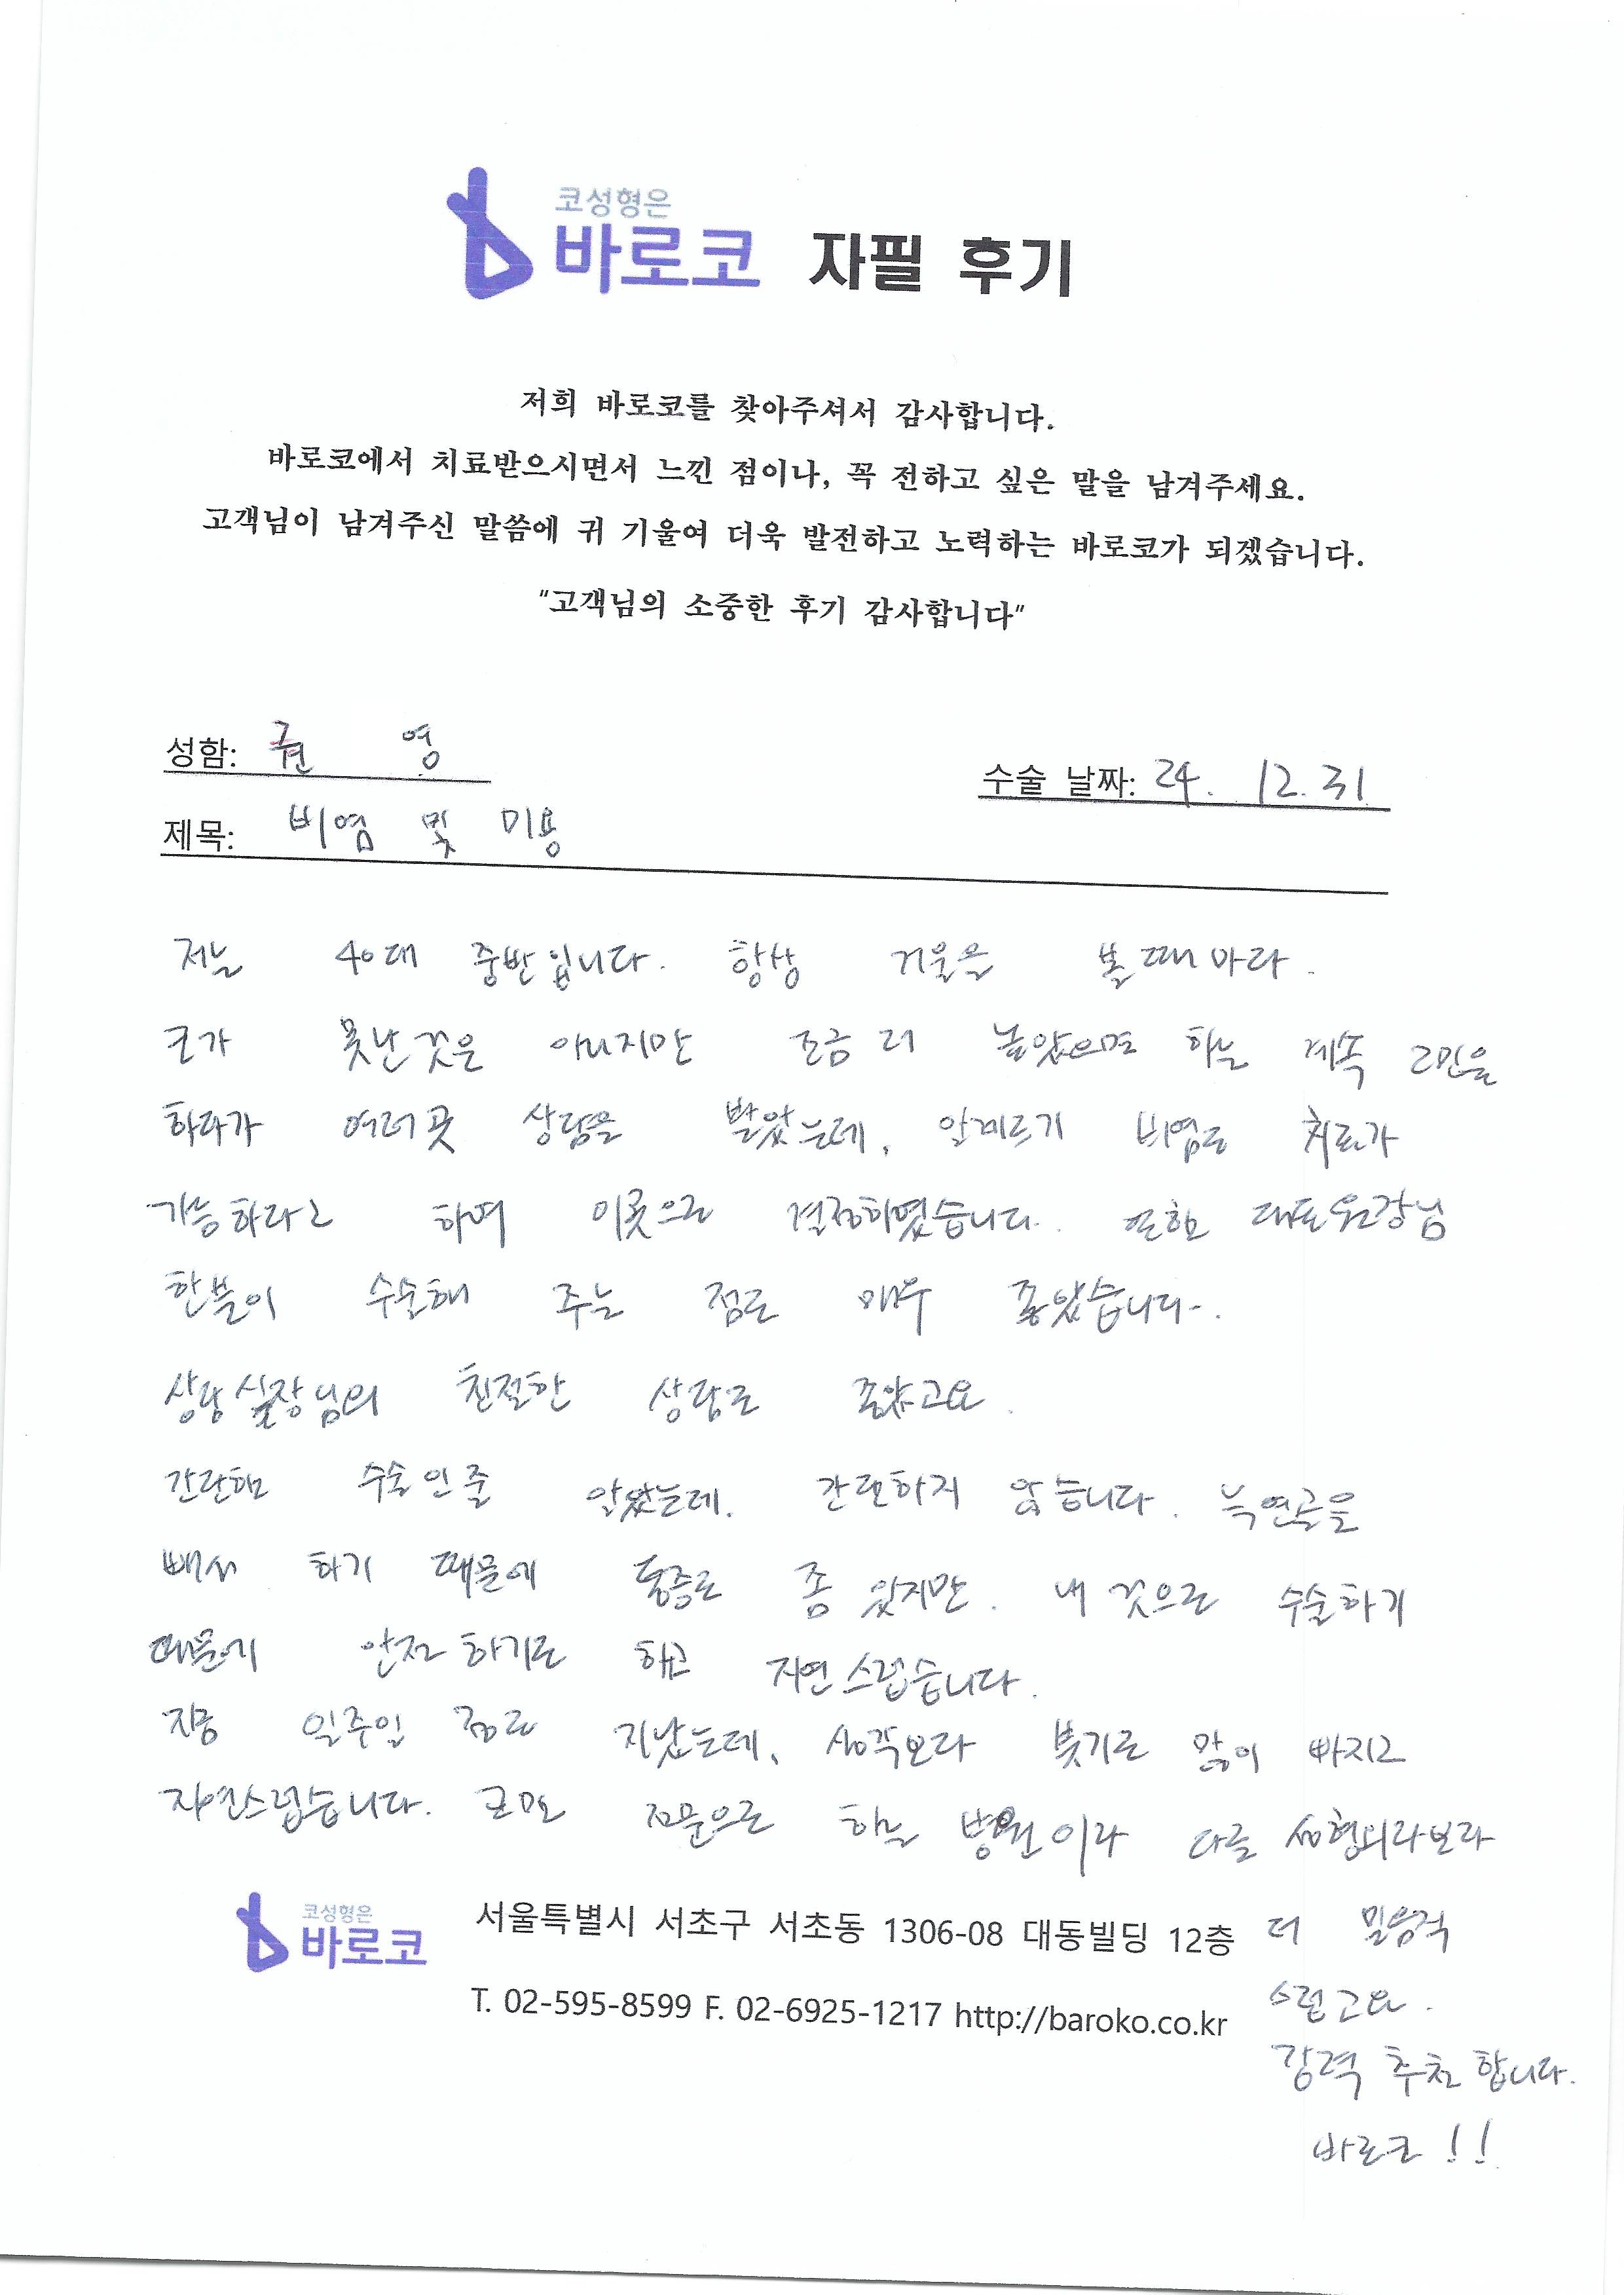 코성형은
바로코 자필 후기
저희 바로코를 찾아주셔서 감사합니다.
바로코에서 치료받으시면서 느낀 점이나, 꼭 전하고 싶은 말을 남겨주세요.
고객님이 남겨주신 말씀에 귀 기울여 더욱 발전하고 노력하는 바로코가 되겠습니다.
"고객님의 소중한 후기 감사합니다"
성함: 권 영
수술 날짜: 24. 12. 31
제목: 비염 및 미용
저는 40대 중반입니다. 항상 거울을 볼때마다.
코가 못난것은 아니지만 조금 더 높았으면 하는 계속 고민을
하다가 여러곳 상담을 받았는데, 알레르기 비염도 치료가
가능하다고 하여 이곳으로 결정하였습니다. 또한 대표원장님
한분이 수술해 주는 점도 매우 좋았습니다.
상담실장님의 친절한 상담도 좋았고요.
간단한 수술인줄 알았는데. 간단하지 않습니다. 늑연골을
빼서 하기 때문에 통증도 좀 있지만. 내 것으로 수술하기
때문에 안전하기도 하고 자연스럽습니다.
지금 일주일 정도 지났는데, 생각보다 붓기도 많이 빠지고
자연스럽습니다. 코만 전문으로 하는 병원이라 다른 성형외과보다
더 믿음직
스럽고요.
강력 추천합니다.
바로코!!
코성형은
바로코
서울특별시 서초구 서초동 1306-08 대동빌딩 12층
T. 02-595-8599 F. 02-6925-1217 http://baroko.co.kr